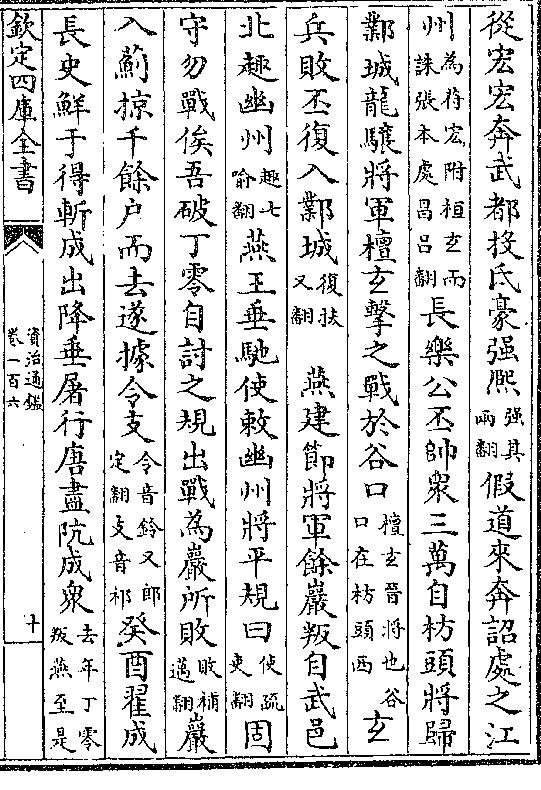 從宏宏奔武都投氐豪强熙强其兩翻假道來奔詔處之江
州為苻宏附桓玄而誅張本處昌吕翻長樂公丕帥衆三萬自枋頭將歸
鄴城龍驤將軍檀玄擊之戰於谷口檀玄晉將也谷口在枋頭西玄
兵敗丕復入鄴城復扶又翻 燕建節將軍餘巖叛自武邑
北趣幽州趣七喻翻燕王垂馳使敕幽州將平規曰使疏吏翻固
守勿戰俟吾破丁零自討之規出戰為巖所敗敗補邁翻巖
入薊掠千餘户而去遂據令支令音鈴又郎定翻支音祁癸酉翟成
長史鮮于得斬成出降垂屠行唐盡阬成衆去年丁零叛燕至是
欽定四庫全書
資治通鑑
卷一百六
十